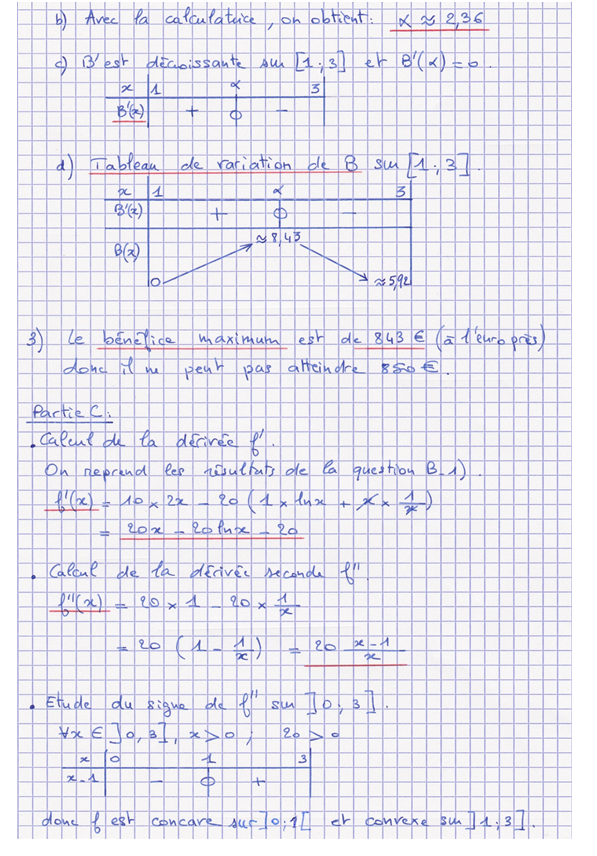 b) Avec la calculatrice, on obtient: α ≈ 2,36
c) B' est décroissante sur [1;3] et B'(α) = 0.
x 1 α 3
B'(x) + 0 -
d) Tableau de variation de B sur [1;3].
x 1 α 3
B'(x) + 0 -
≈ 8,43
B(x)
0 ≈ 5,92
3) Le bénéfice maximum est de 843 € (à l'euro près)
donc il ne peut pas atteindre 850 €.
Partie C:
• Calcul de la dérivée f'.
On reprend les résultats de la question B_1).
f'(x) = 10 × 2x - 20 (1 × ln x + x × 1/x)
= 20x - 20 ln x - 20
• Calcul de la dérivée seconde f''
f''(x) = 20 × 1 - 20 × 1/x
= 20 (1 - 1/x) = 20 x-1/x
• Etude du signe de f'' sur ]0;3].
∀x ∈ ]0,3], x > 0 ; 20 > 0
x 0 1 3
x-1 - 0 +
donc f est concave sur ]0;1[ et convexe sur ]1;3].